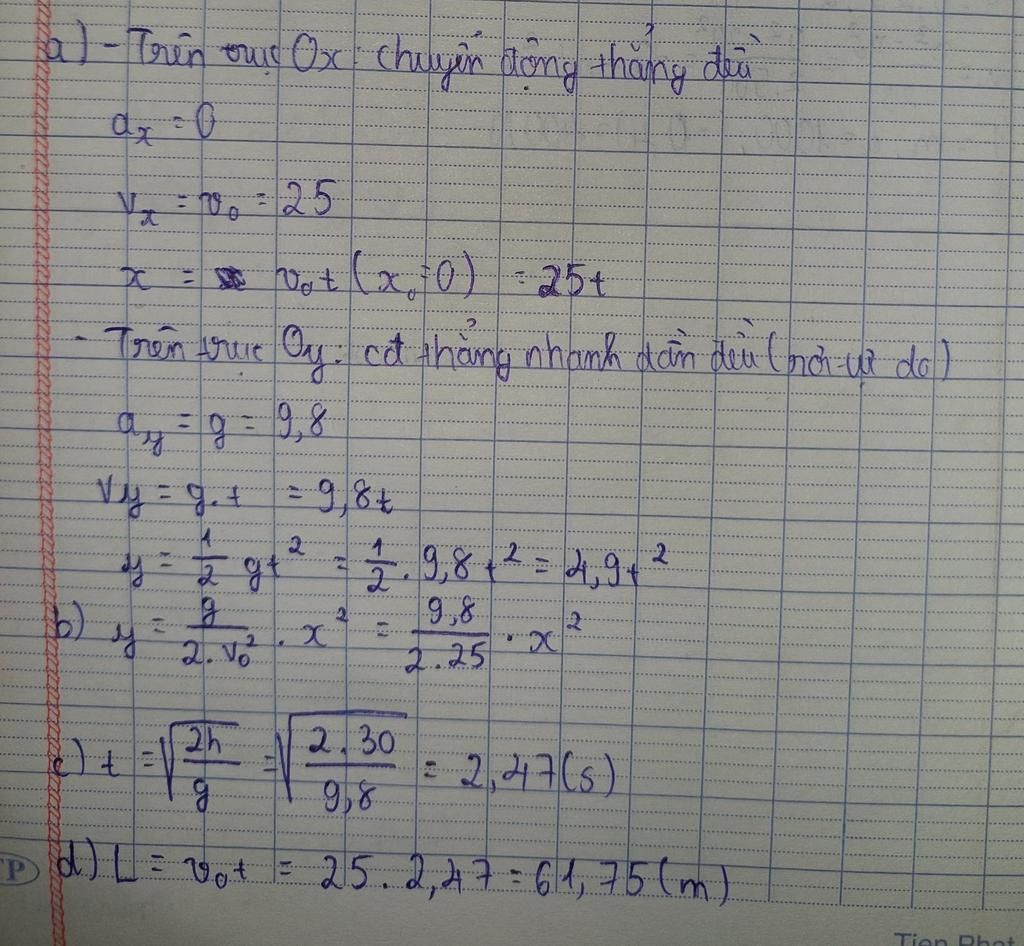 a) - Trên trục Ox: chuyển động thẳng đều
a_x = 0
v_x = v_0 = 25
x = v_0 t (x_0 = 0) = 25t
- Trên trục Oy: cđ thẳng nhanh dần đều (rơi tự do)
a_y = g = 9,8
v_y = g.t = 9,8t
y = 1/2 gt² = 1/2 . 9,8t² = 4,9t²
b) y = g/(2.v_0²) . x² = 9,8/(2.25) . x²
c) t = √(2h/g) = √(2.30/9,8) = 2,47(s)
d) L = v_0 t = 25. 2,47 = 61,75 (m)
TP